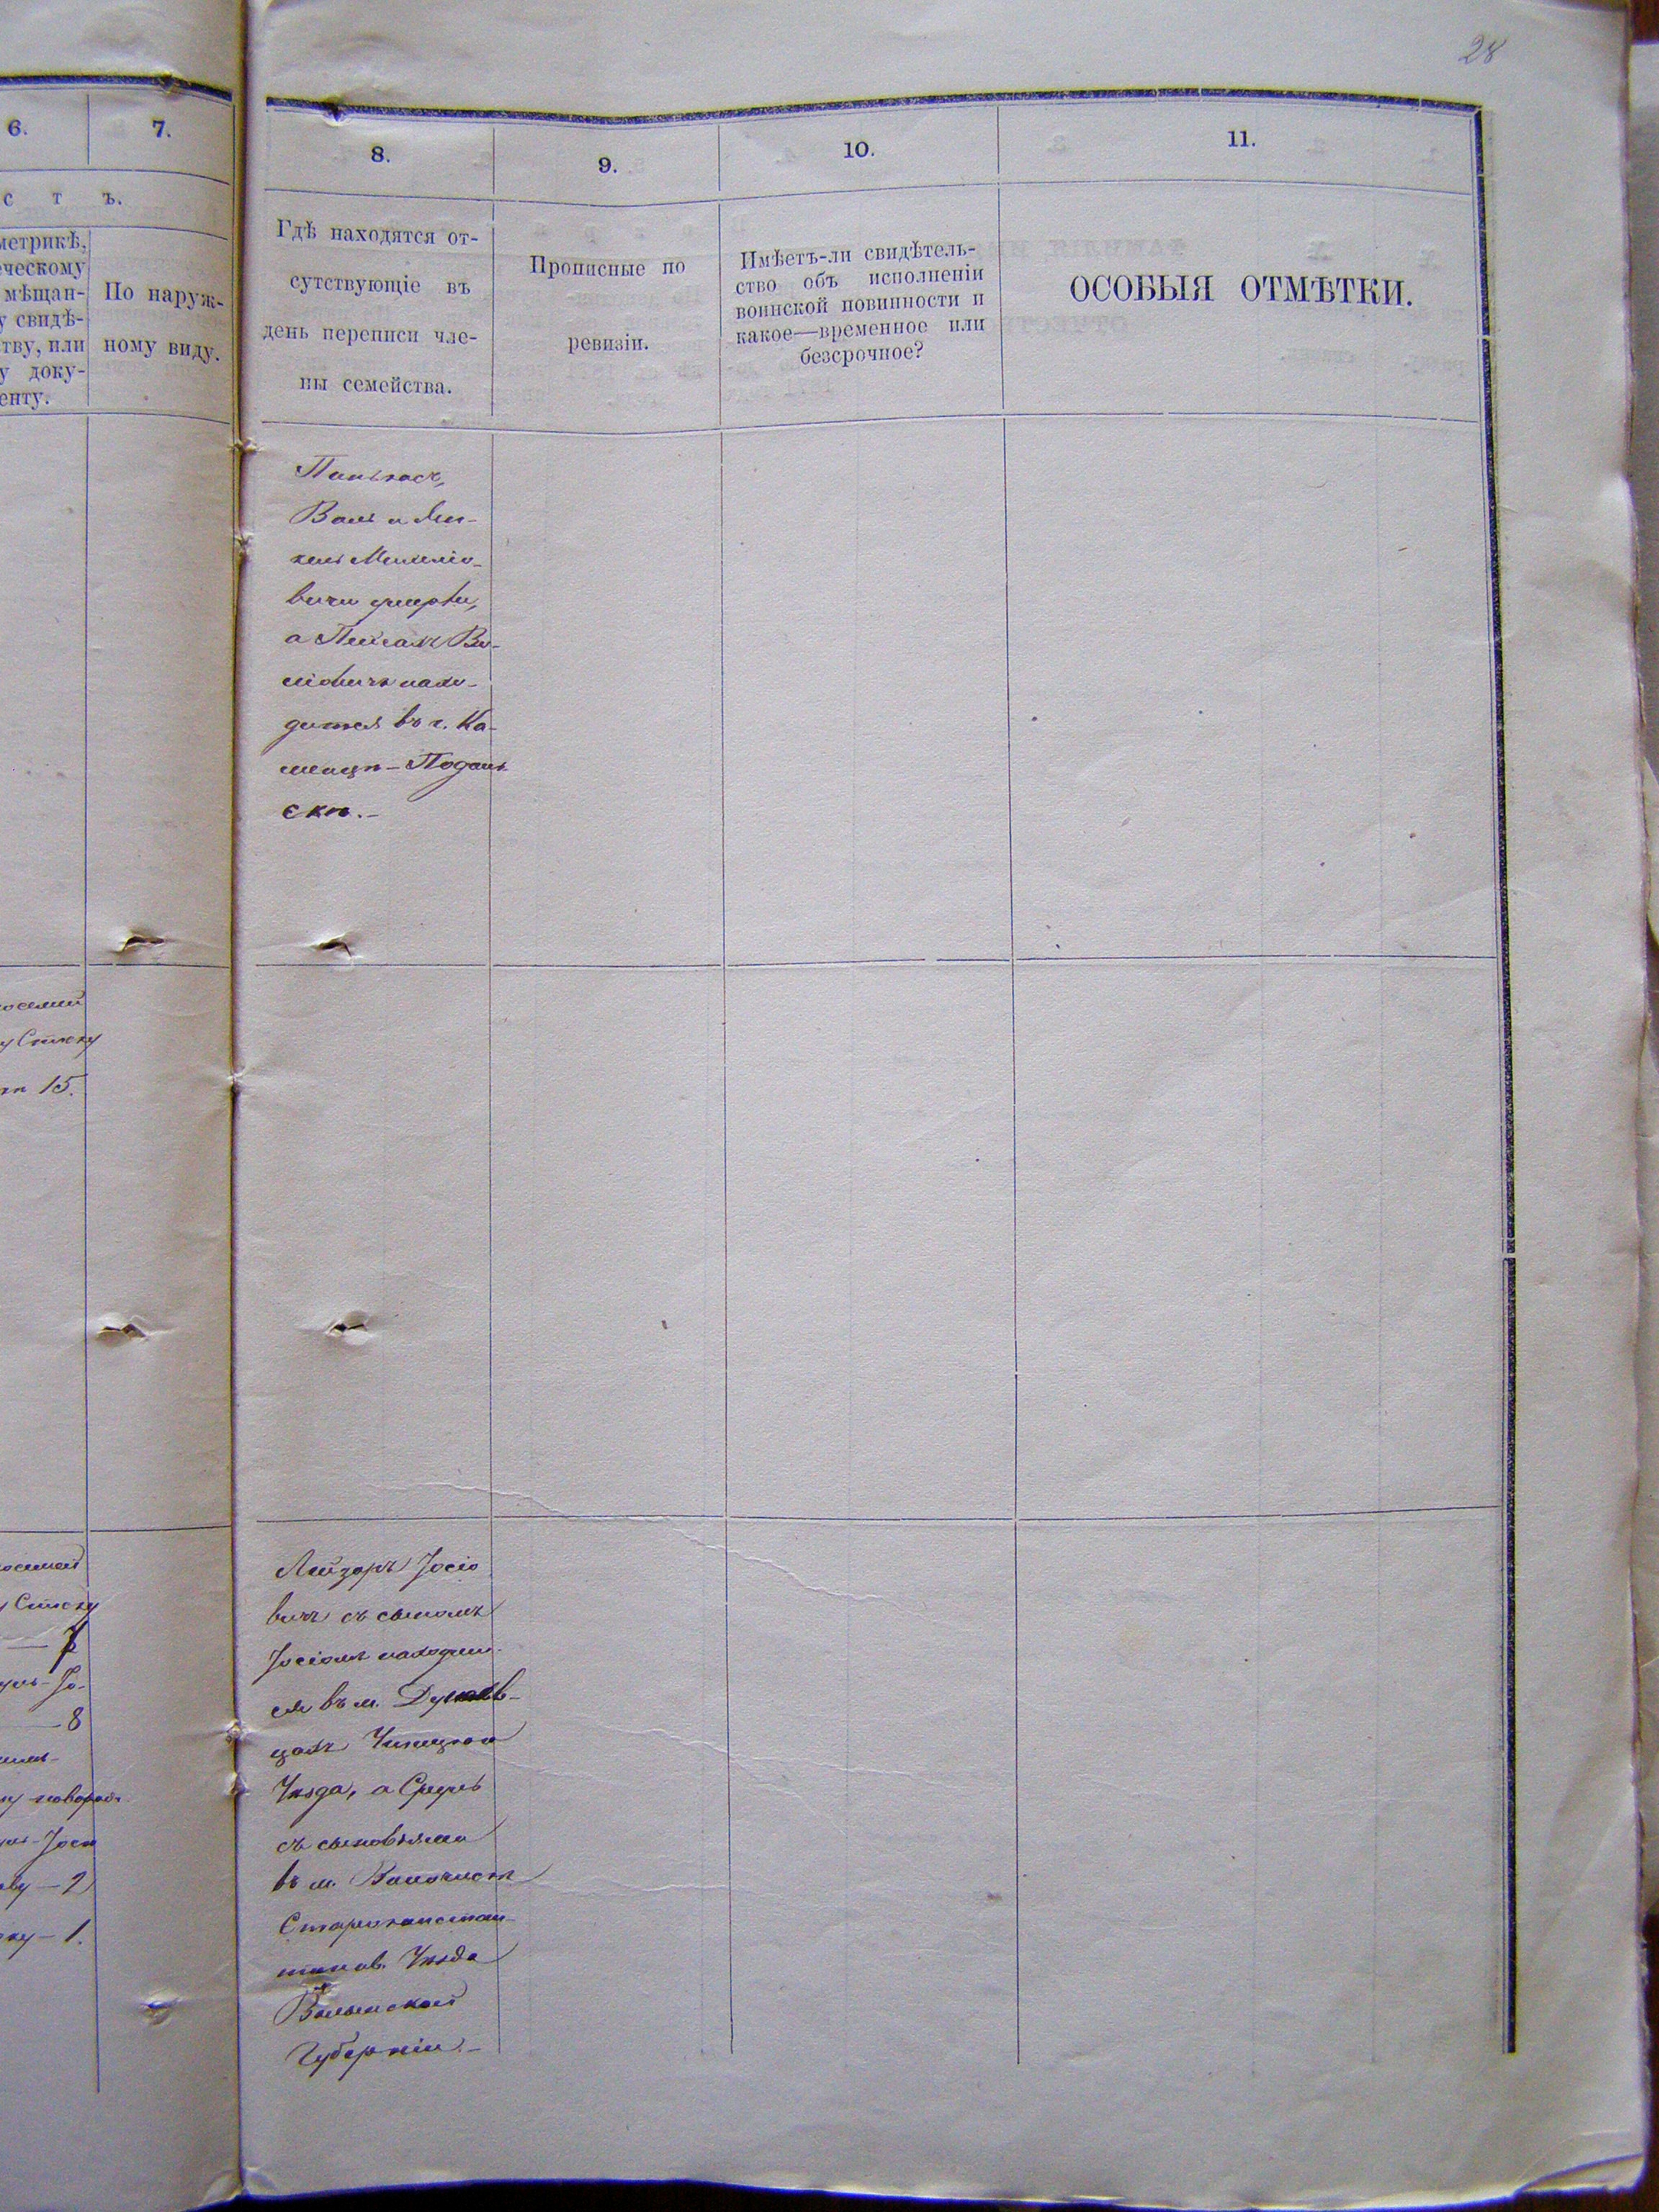 28
6.
7.
8.
9.
10.
11.
с т ъ.
метрикѣ,
ческому
мѣщан-
у свидѣ-
тву, или
у доку-
енту.
По наруж-
ному виду.
Гдѣ находятся от-
сутствующіе въ
день переписи чле-
ны семейства.
Прописные по
ревизіи.
Имѣетъ-ли свидѣтель-
ство объ исполненіи
воинской повинности и
какое—временное или
безсрочное?
ОСОБЫЯ ОТМѢТКИ.
Пинькасъ,
вичи умерли,
дится въ г. Ка-
менцѣ-Подоль-
скѣ.-
у Списку
15.
Списку
7
8
2
1.
Лейзоръ Іосіо
вичъ съ сыномъ
Іосіомъ находит-
ся въ м. Дунаев-
цахъ Ушицкого
Уѣзда, а Сруль
съ сыновьями
въ м.
Староконстан-
тинов. Уѣзда
Волынской
Губерніи.-